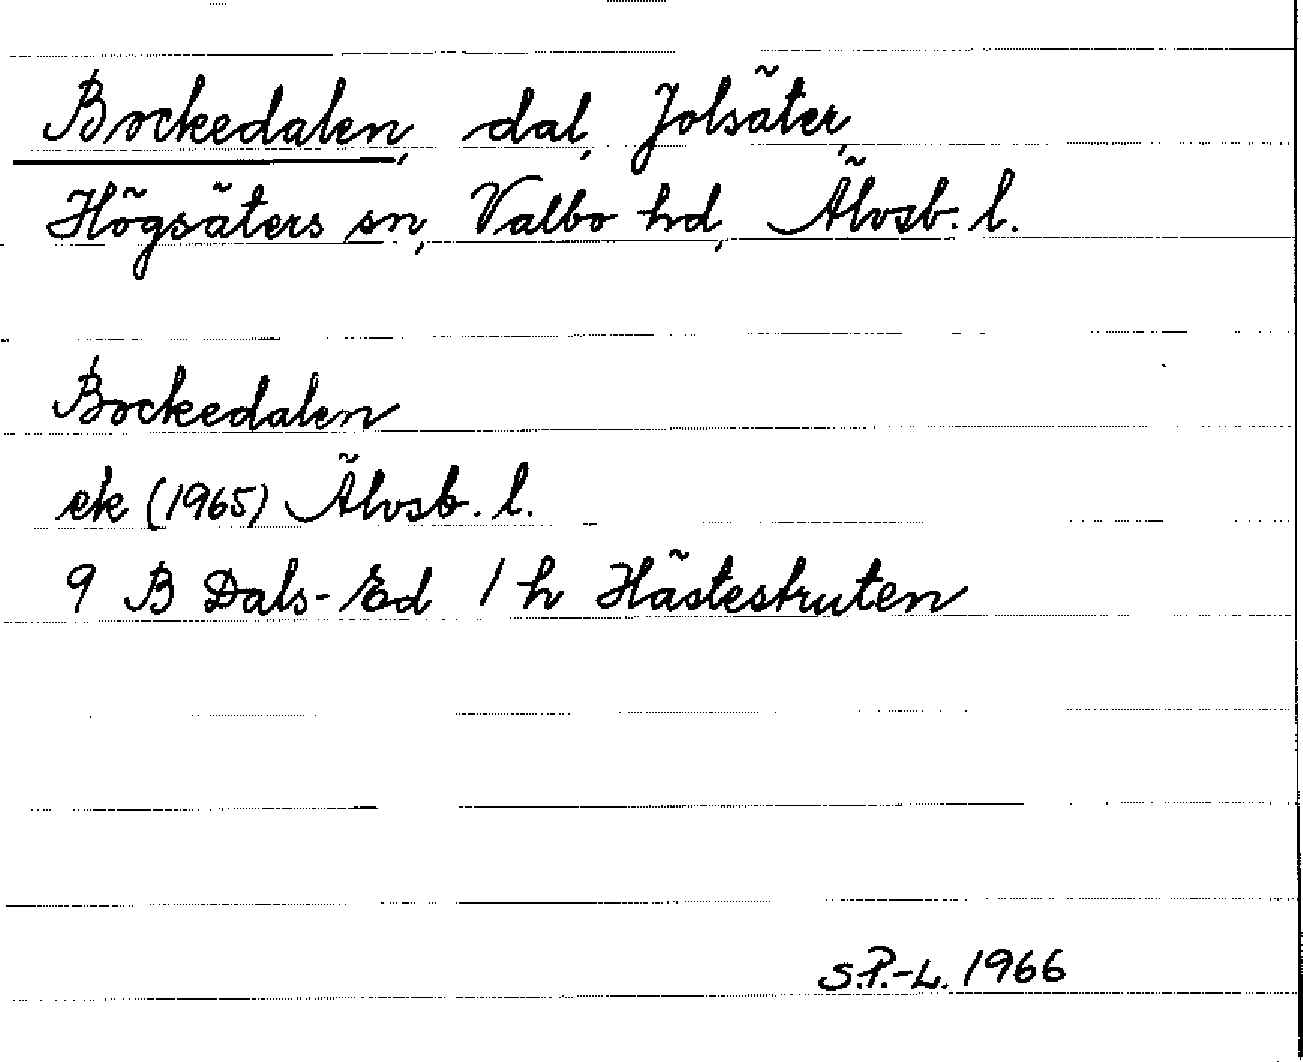 Bockedalen, dal, Jolsäter,
Högsäters sn, Valbo hd, Älvsb. l.
Bockedalen
ek (1965) Älvsb. l.
9 B Dals-Ed 1 h Hästeskuten
S.P.-L. 1966